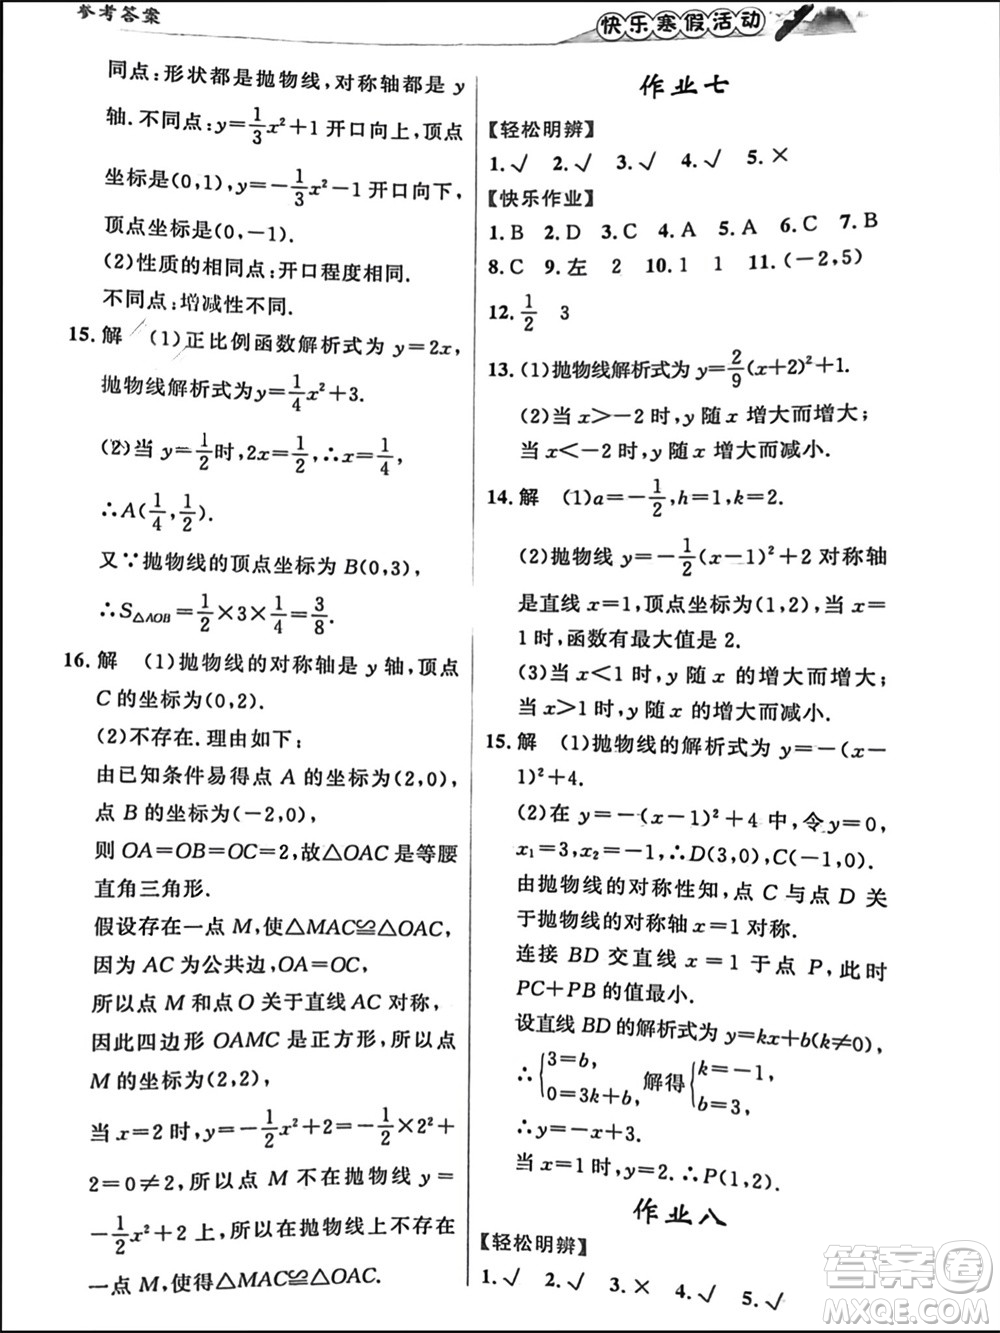 参考答案
快乐寒假活动
同点:形状都是抛物线,对称轴都是 y
轴.不同点:y=1/3x²+1 开口向上,顶点
坐标是(0,1),y=-1/3x²-1 开口向下,
顶点坐标是(0,-1).
(2)性质的相同点:开口程度相同.
不同点:增减性不同.
15. 解 (1)正比例函数解析式为 y=2x,
抛物线解析式为y=1/4x²+3.
(2)当 y=1/2时,2x=1/2,∴x=1/4,
∴A(1/4,1/2).
又∵抛物线的顶点坐标为 B(0,3),
∴S△AOB=1/2×3×1/4=3/8.
16. 解 (1)抛物线的对称轴是 y 轴,顶点
C 的坐标为(0,2).
(2)不存在.理由如下:
由已知条件易得点 A 的坐标为(2,0),
点 B 的坐标为(-2,0),
则 OA=OB=OC=2,故△OAC 是等腰
直角三角形.
假设存在一点 M,使△MAC≌△OAC,
因为 AC 为公共边,OA=OC,
所以点 M 和点 O 关于直线 AC 对称,
因此四边形 OAMC 是正方形,所以点
M 的坐标为(2,2),
当 x=2 时,y=-1/2x²+2=-1/2×2²+
2=0≠2,所以点 M 不在抛物线 y=
-1/2x²+2 上,所以在抛物线上不存在
一点 M,使得△MAC≌△OAC.
作业七
【轻松明辨】
1.√ 2.√ 3.√ 4.√ 5.×
【快乐作业】
1.B 2.D 3.C 4.A 5.A 6.C 7.B
8.C 9.左 2 10.1 1 11.(-2,5)
12. 1/2 3
13. (1)抛物线解析式为 y=2/9(x+2)²+1.
(2)当 x>-2 时,y 随 x 增大而增大;
当 x<-2 时,y 随 x 增大而减小.
14. 解 (1)a=-1/2,h=1,k=2.
(2)抛物线 y=-1/2(x-1)²+2 对称轴
是直线 x=1,顶点坐标为(1,2),当 x=
1 时,函数有最大值是 2.
(3)当 x<1 时,y 随 x 的增大而增大;
当 x>1 时,y 随 x 的增大而减小.
15. 解 (1)抛物线的解析式为 y=-(x-
1)²+4.
(2)在 y=-(x-1)²+4 中,令 y=0,
x₁=3,x₂=-1,∴D(3,0),C(-1,0).
由抛物线的对称性知,点 C 与点 D 关
于抛物线的对称轴 x=1 对称.
连接 BD 交直线 x=1 于点 P,此时
PC+PB 的值最小.
设直线 BD 的解析式为 y=kx+b(k≠0),
∴{3=b, 0=3k+b, 解得{k=-1, b=3,
∴y=-x+3.
当 x=1 时,y=2.∴P(1,2).
作业八
【轻松明辨】
1.√ 2.√ 3.× 4.√ 5.√
答案圈
MXQE.COM